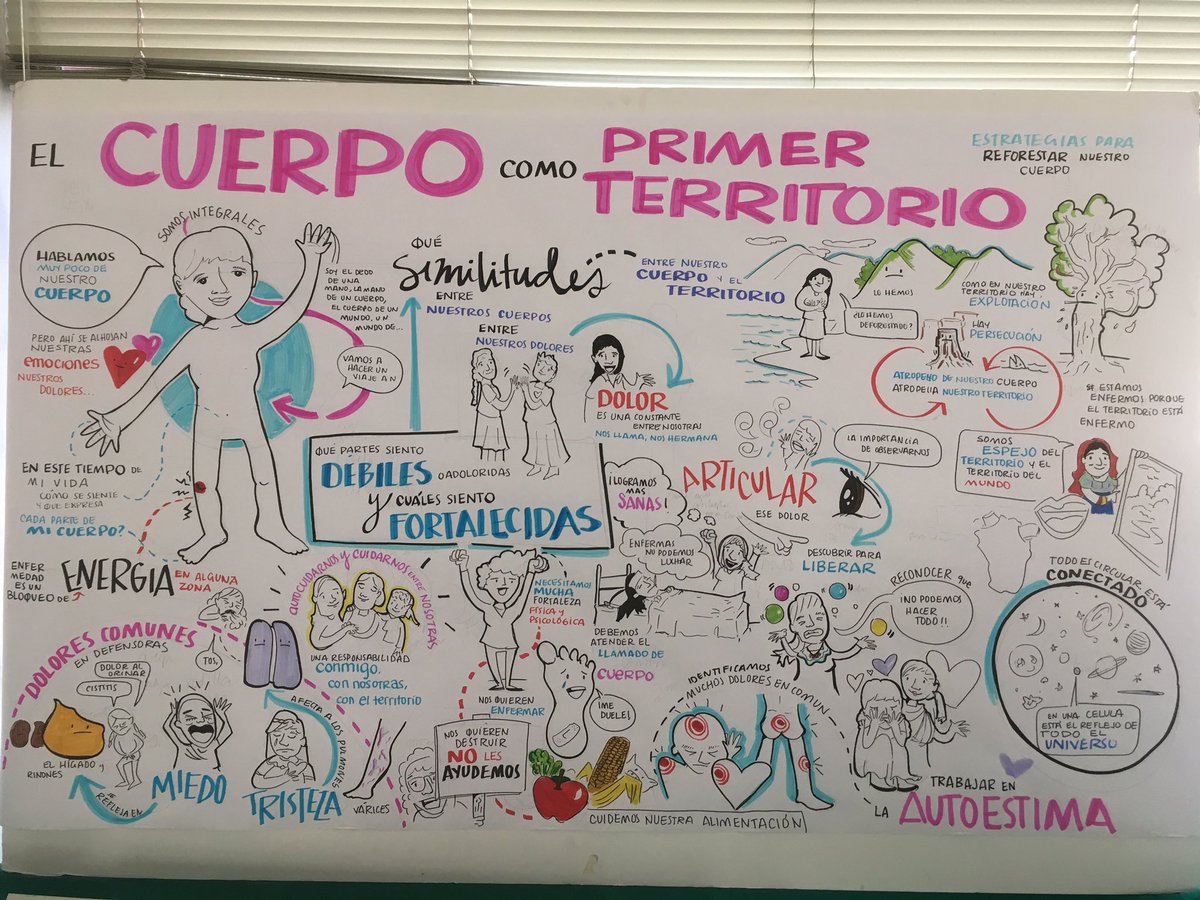 EL CUERPO COMO PRIMER TERRITORIO
ESTRATEGIAS PARA
REFORESTAR NUESTRO
CUERPO
SOMOS INTEGRALES
HABLAMOS
MUY POCO DE
NUESTRO
CUERPO
PERO AHÍ SE ALOJAN
NUESTRAS
EMOCIONES
NUESTROS
DOLORES...
SOY EL DEDO
DE UNA
MANO, LA MANO
DE UN CUERPO,
EL CUERPO DE UN
MUNDO, UN
MUNDO DE...
VAMOS A
HACER UN
VIAJE A
EN ESTE TIEMPO DE
MI VIDA
CÓMO SE SIENTE
Y QUE EXPRESA
CADA PARTE DE
MI CUERPO?
QUÉ
SIMILITUDES
ENTRE
NUESTROS CUERPOS
ENTRE
NUESTROS DOLORES
ENTRE NUESTRO
CUERPO Y EL
TERRITORIO
DOLOR
ES UNA CONSTANTE
ENTRE NOSOTRAS
NOS LLAMA, NOS HERMANA
QUÉ PARTES SIENTO
DÉBILES O ADOLORIDAS
Y CUÁLES SIENTO
FORTALECIDAS
LO HEMOS
¿LO HEMOS
DEFORESTADO?
COMO EN NUESTRO
TERRITORIO HAY
EXPLOTACIÓN
HAY
PERSECUCIÓN
ATROPELLO DE NUESTRO CUERPO
ATROPELLA NUESTRO TERRITORIO
SI ESTAMOS
ENFERMOS PORQUE
EL TERRITORIO ESTÁ
ENFERMO
SOMOS
ESPEJO DEL
TERRITORIO Y EL
TERRITORIO DEL
MUNDO
¡LOGRAMOS
MAS
SANAS!
ARTICULAR
ESE DOLOR
LA IMPORTANCIA
DE OBSERVARNOS
DESCUBRIR PARA
LIBERAR
ENFERMAS
NO PODEMOS
LUCHAR
DEBEMOS
ATENDER EL
LLAMADO DE
CUERPO
ENFER
MEDAD
ES UN
BLOQUEO DE
ENERGIA EN ALGUNA
ZONA
DOLORES COMUNES
EN DEFENSORAS
DOLOR AL
ORINAR
CISTITIS
TOS,
EL HÍGADO Y
RIÑONES
SE
REFLEJA EN
MIEDO
TRISTEZA
AFECTA A LOS PULMONES
VÁRICES
AUTOCUIDARNOS Y CUIDARNOS ENTRE NOSOTRAS
UNA RESPONSABILIDAD
CONMIGO,
CON NOSOTRAS,
CON EL TERRITORIO
NECESITAMOS
MUCHA
FORTALEZA
FÍSICA Y
PSICOLÓGICA
NOS QUIEREN
ENFERMAR
NOS QUIEREN
DESTRUIR
NO LES
AYUDEMOS
¡ME
DUELE!
CUIDEMOS NUESTRA ALIMENTACIÓN
IDENTIFICAMOS
MUCHOS DOLORES EN COMUN
RECONOCER QUE
¡NO PODEMOS
HACER
TODO!!
TRABAJAR EN
LA AUTOESTIMA
TODO ES CIRCULAR, ESTÁ
CONECTADO
EN UNA CELULA
ESTÁ EL REFLEJO DE
TODO EL
UNIVERSO